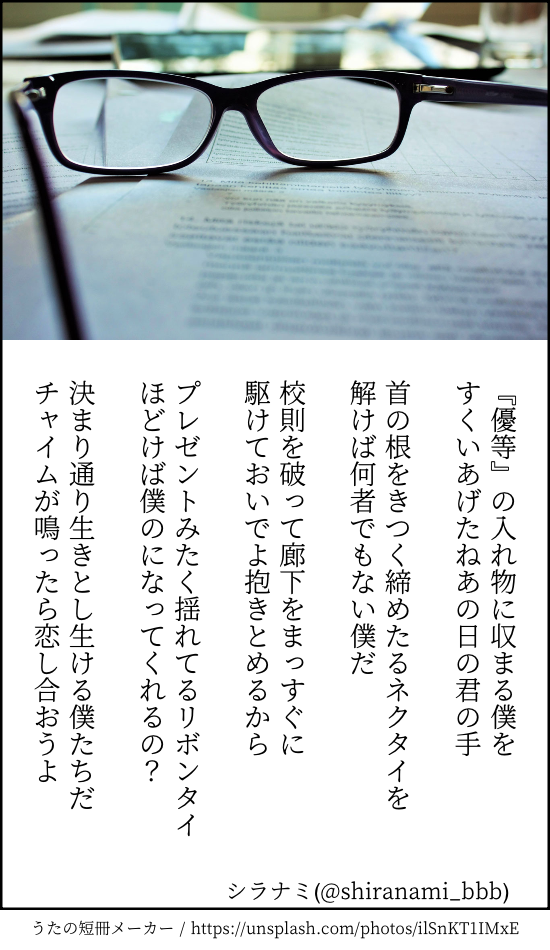 『優等』の入れ物に収まる僕を
すくいあげたねあの日の君の手
首の根をきつく締めたるネクタイを
解けば何者でもない僕だ
校則を破って廊下をまっすぐに
駆けておいでよ抱きとめるから
プレゼントみたく揺れてるリボンタイ
ほどけば僕のになってくれるの？
決まり通り生きとし生ける僕たちだ
チャイムが鳴ったら恋し合おうよ
シラナミ(@shiranami_bbb)
うたの短冊メーカー / https://unsplash.com/photos/ilSnKT1IMxE